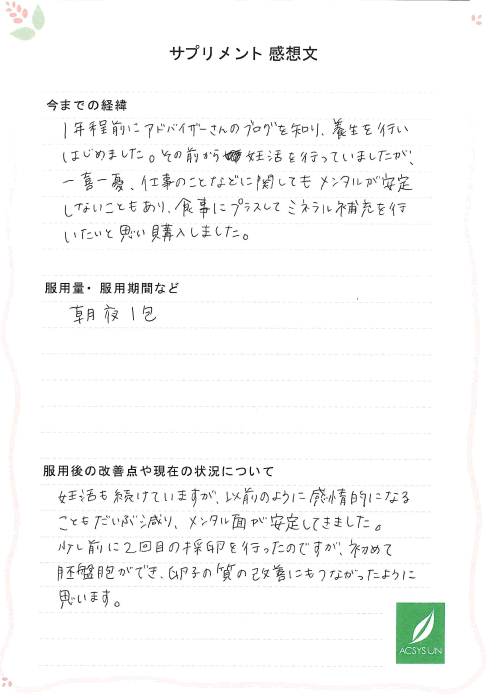 サプリメント 感想文
今までの経緯
1年程前にアドバイザーさんのブログを知り、養生を行い
はじめました。その前から妊活を行っていましたが、
一喜一憂、仕事のことなどに関してもメンタルが安定
しないこともあり、食事にプラスしてミネラル補充を行
いたいと思い購入しました。
服用量・服用期間など
朝夜1包
服用後の改善点や現在の状況について
妊活も続けていますが、以前のように感情的になる
こともだいぶ減り、メンタル面が安定してきました。
少し前に2回目の採卵を行ったのですが、初めて
胚盤胞ができ、卵子の質の改善にもつながったように
思います。
ACSYSUN